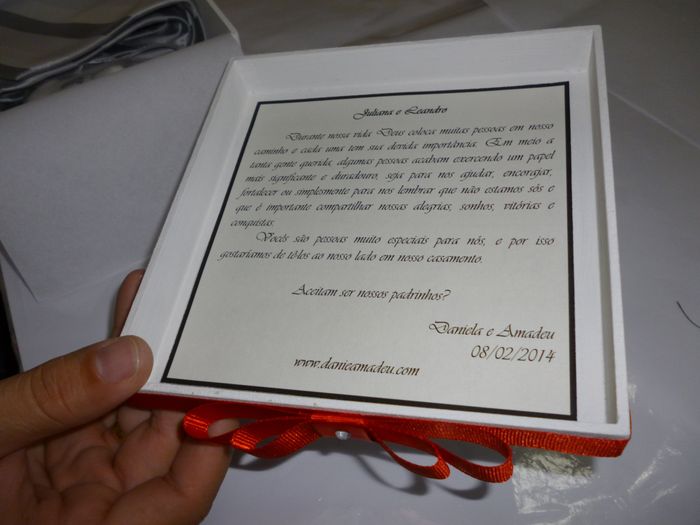 Juliana e Leandro
Durante nossa vida Deus coloca muitas pessoas em nosso
caminho e cada uma tem sua devida importância. Em meio a
tanta gente querida, algumas pessoas acabam exercendo um papel
mais significante e duradouro, seja para nos ajudar, encorajar,
fortalecer ou simplesmente para nos lembrar que não estamos sós e
que é importante compartilhar nossas alegrias, sonhos, vitórias e
conquistas.
Vocês são pessoas muito especiais para nós, e por isso
gostaríamos de tê-los ao nosso lado em nosso casamento.
Aceitam ser nossos padrinhos?
Daniela e Amadeu
08/02/2014
www.danieamadeu.com